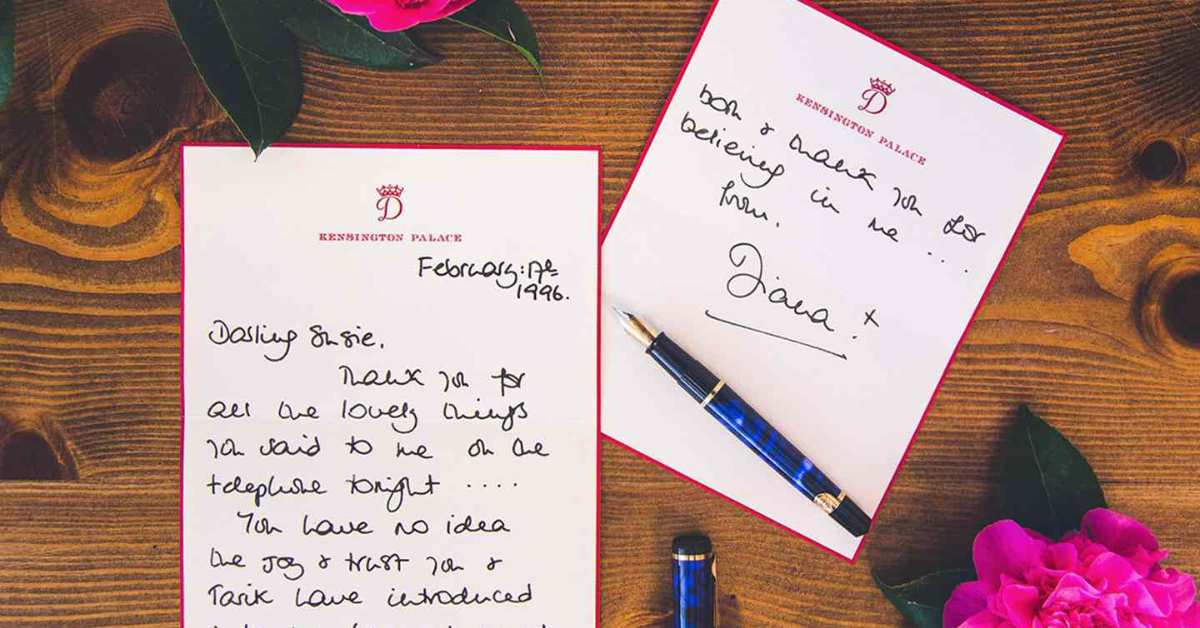 D
KENSINGTON PALACE
February: 17th
1996.
Darling Susie,
Thank you for
all the lovely things
you said to me on the
telephone tonight ....
You have no idea
the joy & trust you &
Tarik have introduced
D
KENSINGTON PALACE
both & thank you for
believing in me ....
from.
Diana. x